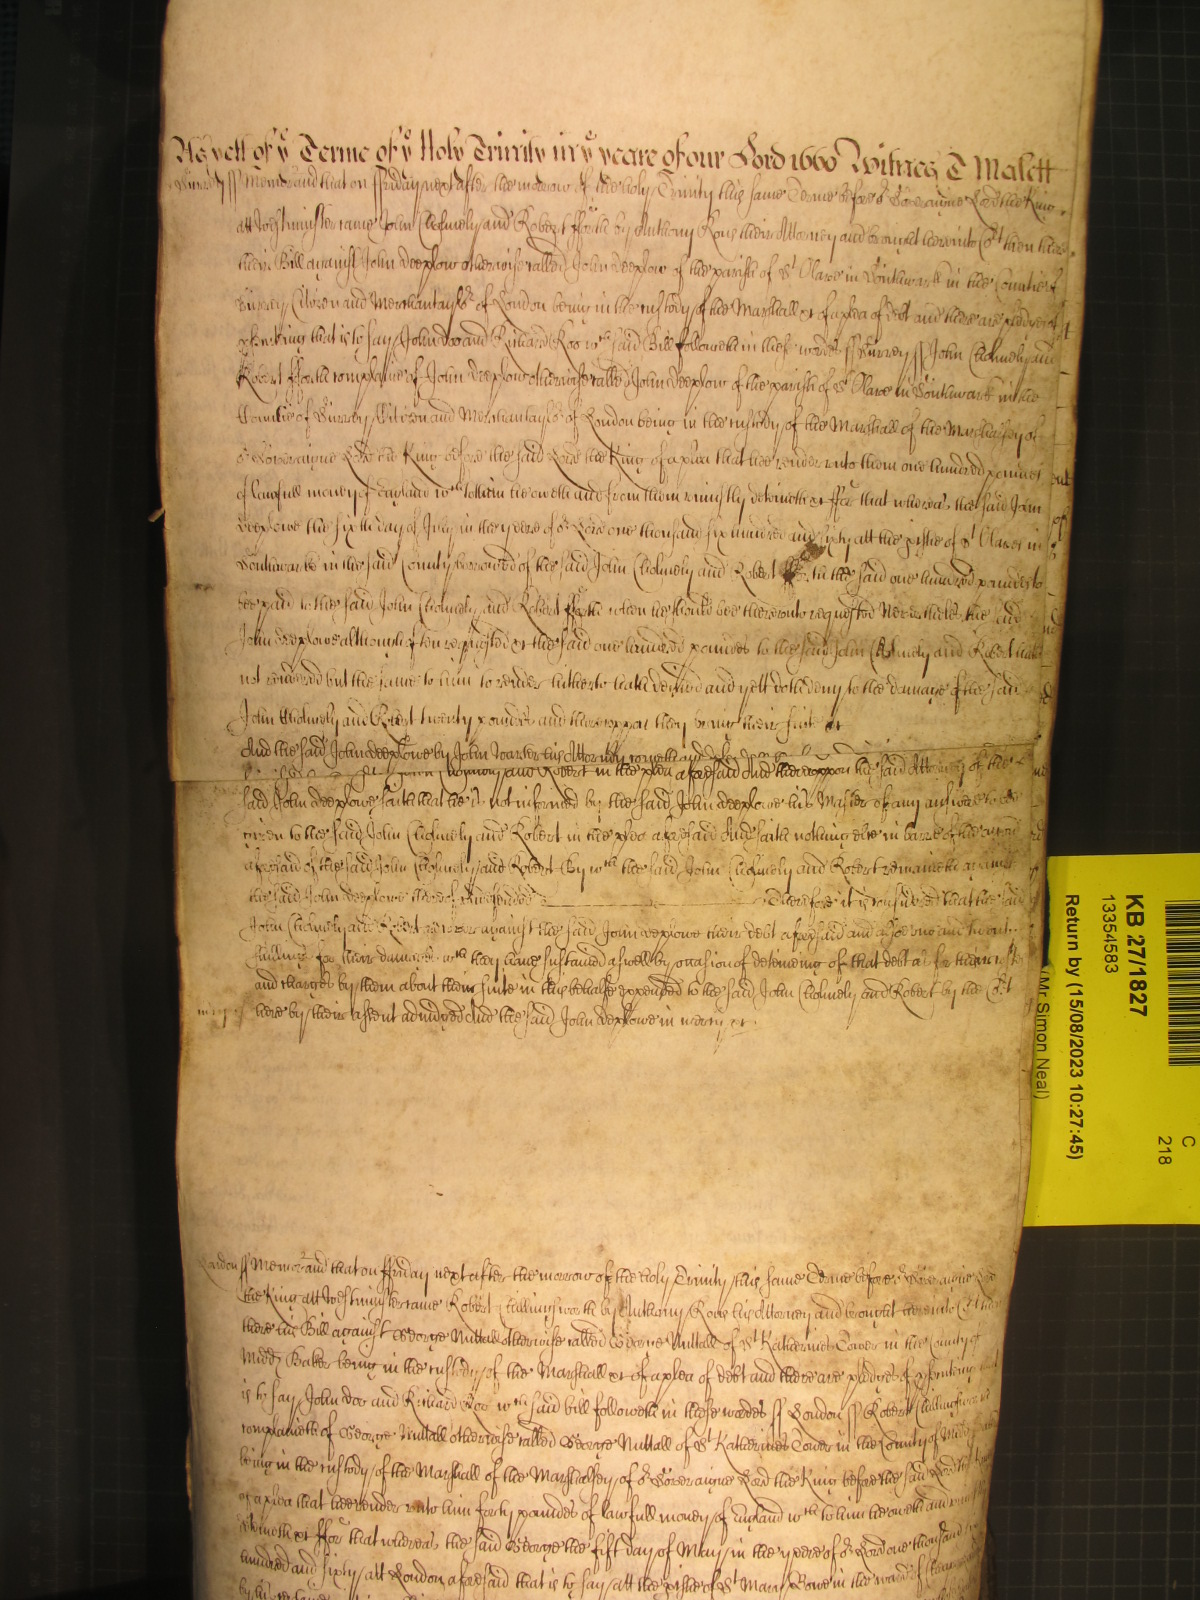 As yett of ye Terme of ye Holy Trinity in ye yeare of our Lord 1660 Witnes T Malett
Surrey ss Memorand that on ffryday next after the morrow of the holy Trinity this same Terme before or Soveraigne Lord the King
att Westminster came John Cholmely and Robert fforth by Anthony Rous their Attorney and brought here into Cort then there
their Bill against John Deeplow otherwise called John Deeplow of the parish of St Olave in Southwark in the Countie of
Surrey Citizen and Merchantaylor of London being in the custody of the Marshall &c of a plea of debt and there are pledges of
psenting that is to say John Doo and Richard Roo wch said Bill followeth in these wordes ss Surrey ss John Cholmely and
Robert fforth complaine of John Deeplow otherwise called John Deeplow of the parish of St Olave in Southwark in the
Countie of Surrey Citizen and Merchantaylor of London being in the custody of the Marshall of the Marshalsey of
or Soveraigne Lord the King before the said Lord the King of a plea that hee render unto them one hundred poundes
of lawfull money of England wch to them he oweth and from them uniustly deteineth &c ffor that whereas the said John
Deeplowe the sixth day of July in the yeere of or Lord one thousand six hundred and sixty att the pishe of St Olaves in
Southwarke in the said County borrowed of the said John Cholmely and Robert the said one hundred poundes to
bee paid to the said John Cholmely and Robert fforth when he should bee thereunto requested Neverthelesse the said
John Deeplowe although often requested &c the said one hundred poundes to the said John Cholmely and Robert hath
not rendered but the same to him to render hitherto hath denyed and yett doth deny to the damage of the said
John Cholmely and Robert twenty poundes and thereuppon they bring their suite &c
And the said John Deeplowe by John his Attorney cometh and
and Robert in the plea aforesaid And thereuppon the said Attorney of the
said John Deeplowe saith that he is not informed by the said John Deeplowe his Master of any answere to bee
given to the said John Cholmely and Robert in the plea aforesaid And saith nothing else in barre of the action
aforesaid of the said John Cholmely and Robert By wch the said John Cholmely and Robert remaineth against
the said John Deeplowe thereof undefended Therefore it is considered that the said
John Cholmely and Robert recover against the said John Deeplowe their debt aforesaid and alsoe one and twenty
shillings for their damages wch they have sustained aswell by occasion of deteineing of that debt as for their costs
and charges by them about their suite in this behalfe expended to the said John Cholmely and Robert by the Cort
here by their assent adiudged And the said John Deeplowe in mercy &c
mercy
London ss Memorand that on ffryday next after the morrow of the holy Trinity this same Terme before or Soveraigne Lord
the King att Westminster came Robert Chillingworth by Anthony Rous his Attorney and brought here into Cort then
there his Bill against George Nuttall otherwise called George Nuttall of St Katherines Tower in the County of
Midd Baker being in the custody of the Marshall &c of a plea of debt and there are pledges of psenting that
is to say John Doo and Richard Roo wch said bill followeth in these wordes ss London ss Robert Chillingworth
complaineth of George Nuttall otherwise called George Nuttall of St Katherines Tower in the County of Midd
being in the custody of the Marshall of the Marshalsey of or Soveraigne Lord the King before the said Lord the King
of a plea that hee render unto him forty poundes of lawfull money of England wch to him he oweth and uniustly
deteineth &c ffor that whereas the said George the first day of May in the yeere of or Lord one thousand six
hundred and sixty att London aforesaid that is to say att the pishe of St Mary Bowe in the ward of
KB 27/1827
13354583
Return by (15/08/2023 10:27:45)
(Mr Simon Neal)
C
218